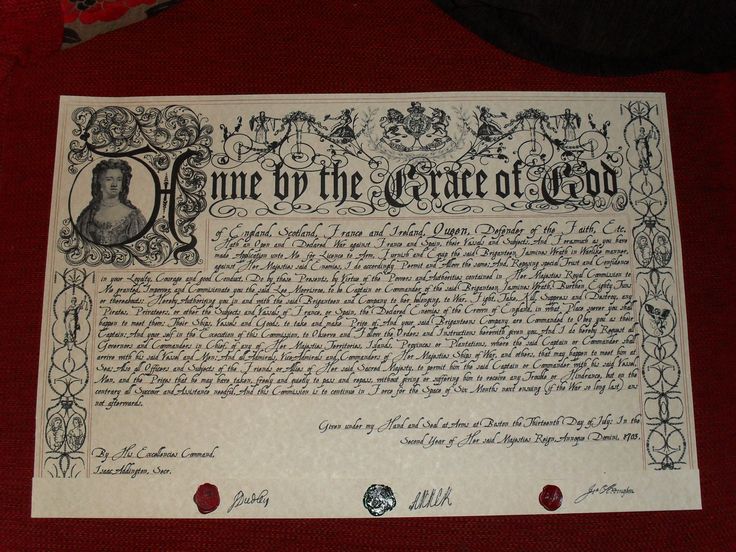 Anne by the Grace of God
of England, Scotland, France and Ireland, Queen, Defender of the Faith, Etc.
Hath an Open and Declared War against France and Spain, their Vessels and Subjects. And Forasmuch as you have
made Application unto Me for Licence to Arm, Furnish and Equip the said Briganteen Jasmines Wrath in Warlike manner,
against Her Majesties said Enemies, I do accordingly Permit and Allow the same; And, Reposing special Trust and Confidence
in your Loyalty, Courage and good Conduct, Do by these Presents, by Virtue of the Powers and Authorities contained in Her Majesties Royal Commission to
Me granted, Impower and Commissionate you the said Lee Morrison, to be Captain or Commander of the said Briganteen Jasmines Wrath, Burthen Eighty Tuns
or thereabouts: Hereby Authorising you in and with the said Briganteen and Company to her belonging, to War, Fight, Take, Kill, Suppress and Destroy, any
Pirates, Privateers, or other the Subjects and Vassals of France, or Spain, the Declared Enemies of the Crown of England, in what Place soever you shall
happen to meet them; Their Ships, Vessels and Goods, to take and make Prize of. And your said Briganteens Company are Commanded to Obey you as their
Captain: And your self in the Execution of this Commission, to Observe and Follow the Orders and Instructions herewith given you. And I do hereby Request all
Governors and Commanders in Chief, of any of Her Majesties Territories, Islands, Provinces or Plantations, where the said Captain or Commander shall
arrive with his said Vessel and Men: And all Admirals, Vice-Admirals and Commanders of Her Majesties Ships of War, and others, that may happen to meet him at
Sea; Also all Officers and Subjects of the Friends or Allies of Her said Sacred Majesty, to permit him the said Captain or Commander with his said Vessel,
Men, and the Prizes that he may have taken, freely and quietly to pass and repass, without giving or suffering him to receive any Trouble or Hindrance, but on the
contrary all Succour and Assistance needful. And this Commission is to continue in Force for the Space of Six Months next ensuing (if the War so long last) and
not afterwards.
Given under my Hand and Seal at Arms at Boston the Thirteenth Day of July: In the
Second Year of Her said Majesties Reign, Annoque Domini, 1703.
By His Excellencies Command,
Isaac Addington, Secr.
J Dudley